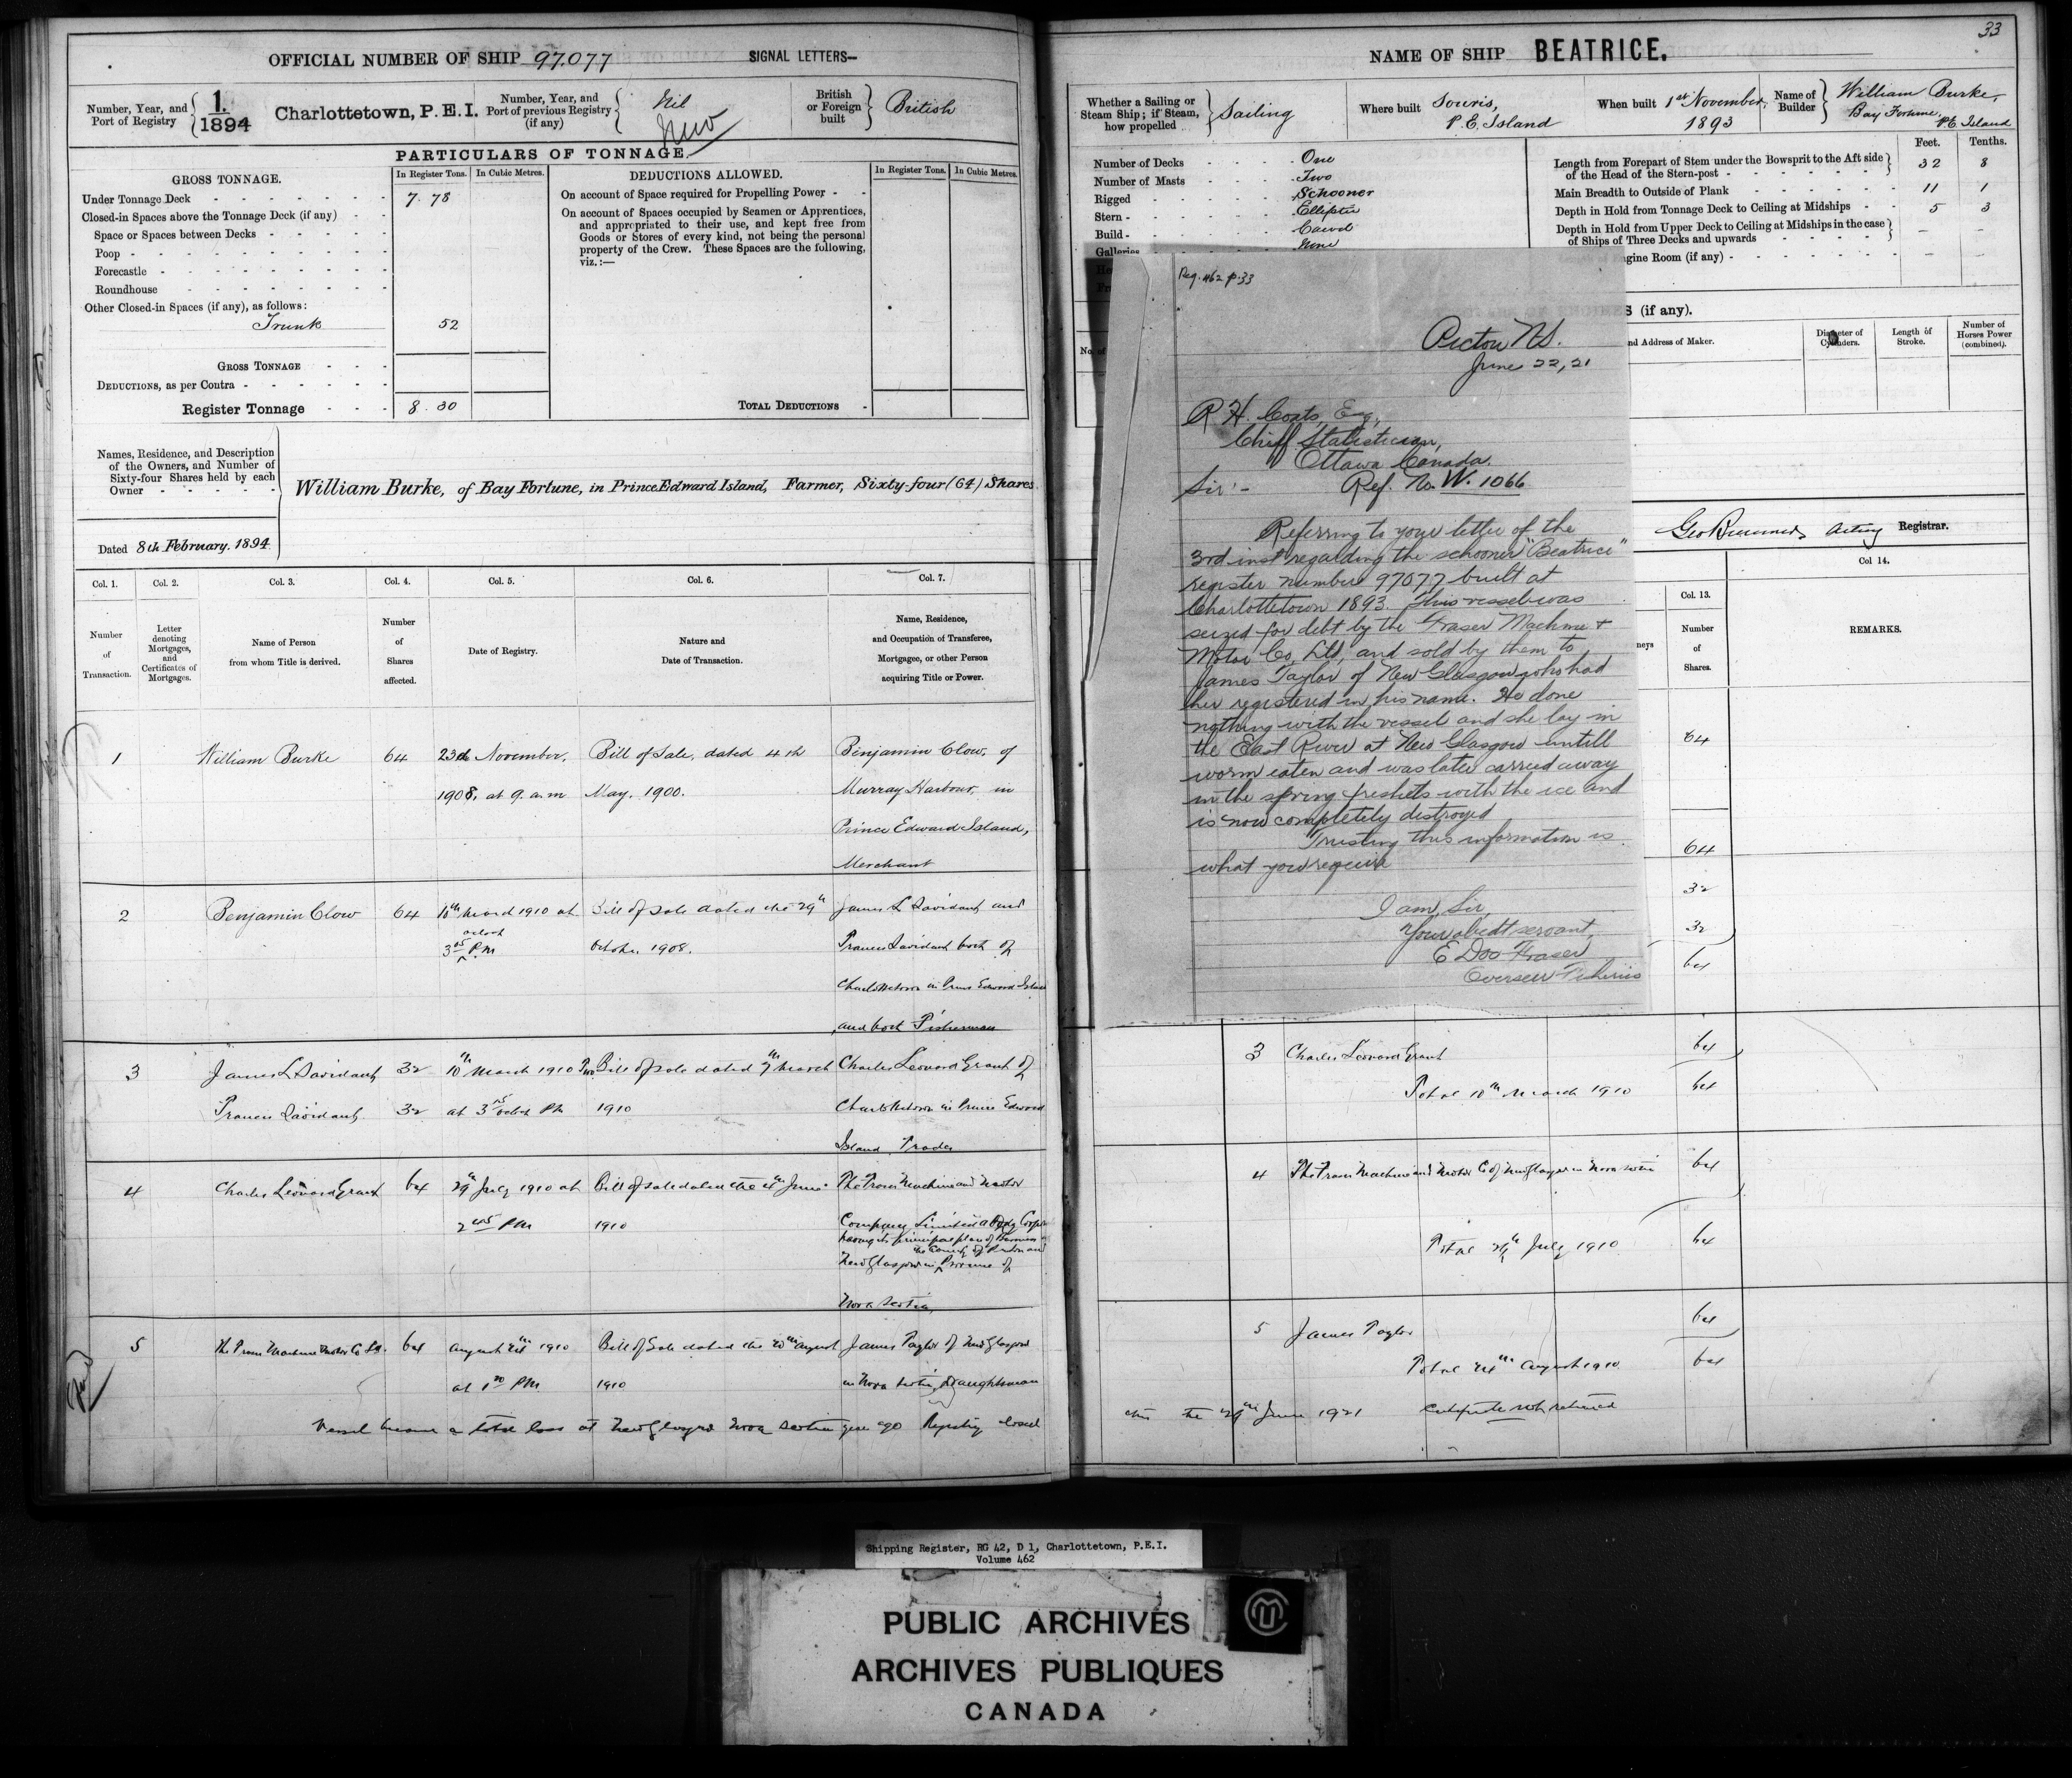 33
OFFICIAL NUMBER OF SHIP 97.077 SIGNAL LETTERS—
Number, Year, and Port of Registry 1. 1894 Charlottetown, P.E.I.
Number, Year, and Port of previous Registry (if any) Nil New
British or Foreign built British
PARTICULARS OF TONNAGE.
GROSS TONNAGE. In Register Tons. In Cubic Metres.
Under Tonnage Deck 7.78
Closed-in Spaces above the Tonnage Deck (if any)
Space or Spaces between Decks
Poop
Forecastle
Roundhouse
Other Closed-in Spaces (if any), as follows:
Trunk 52
GROSS TONNAGE
DEDUCTIONS, as per Contra
Register Tonnage 8.30
DEDUCTIONS ALLOWED. In Register Tons. In Cubic Metres.
On account of Space required for Propelling Power
On account of Spaces occupied by Seamen or Apprentices,
and appropriated to their use, and kept free from
Goods or Stores of every kind, not being the personal
property of the Crew. These Spaces are the following,
viz.:—
TOTAL DEDUCTIONS
Names, Residence, and Description
of the Owners, and Number of
Sixty-four Shares held by each
Owner
William Burke, of Bay Fortune, in Prince Edward Island, Farmer, Sixty-four (64) Shares
Dated 8th February. 1894
Col. 1. Col. 2. Col. 3. Col. 4. Col. 5. Col. 6. Col. 7.
Number of Transaction.
Letter denoting Mortgages, and Certificates of Mortgages.
Name of Person from whom Title is derived.
Number of Shares affected.
Date of Registry.
Nature and Date of Transaction.
Name, Residence, and Occupation of Transferee, Mortgagee, or other Person acquiring Title or Power.
1 William Burke 64 23rd November, Bill of Sale, dated 4th Benjamin Clow, of
1908, at 9. a.m May. 1900. Murray Harbour, in
Prince Edward Island,
Merchant
2 Benjamin Clow 64 10th March 1910 at Bill of Sale dated the 29th James L Davidant and
3 05 oclock PM October 1908. Francis Davidant both of
Charlottetown in Prince Edward Island
and both Fisherman
3 James L Davidant 32 10th March 1910 Two Bill of Sale dated 7th March Charles Leonard Grant of
Francis Davidant 32 at 3 05 oclock PM 1910 Charlottetown in Prince Edward
Island Trader
4 Charles Leonard Grant 64 29th July 1910 at Bill of Sale dated the 4th June The Fraser Machine and Motor
2 45 PM 1910 Company Limited a Body Corporate
having its principal place of Business at
New Glasgow in the County of Pictou and Province of
Nova Scotia
5 The Fraser Machine Motor Co Ltd. 64 August 24th 1910 Bill of Sale dated the 20th August James Taylor of New Glasgow
at 1 20 PM 1910 in Nova Scotia, Draughtsman
Vessel became a total loss at New Glasgow Nova Scotia years ago Registry closed
NAME OF SHIP BEATRICE.
Whether a Sailing or Steam Ship; if Steam, how propelled Sailing
Where built Souris, P.E. Island
When built 1st November, 1893
Name of Builder William Burke, Bay Fortune, P.E. Island
Feet. Tenths.
Number of Decks One
Number of Masts Two
Rigged Schooner
Stern Elliptic
Build Carvel
Galleries None
Length from Forepart of Stem under the Bowsprit to the Aft side of the Head of the Stern-post 32 8
Main Breadth to Outside of Plank 11 1
Depth in Hold from Tonnage Deck to Ceiling at Midships 5 3
Depth in Hold from Upper Deck to Ceiling at Midships in the case of Ships of Three Decks and upwards — —
gine Room (if any) — —
S (if any).
No. of
nd Address of Maker. Diameter of Cylinders. Length of Stroke. Number of Horses Power (combined).
Acting Registrar.
Col. 13. Col 14.
neys Number of Shares. REMARKS.
64
64
32
32
64
Reg. 462 p.33
Pictou NS.
June 22, 21
R H. Coats, Esq,
Chiff Statistician,
Ottawa Canada.
Sir:- Ref. No. W. 1066
Referring to your letter of the
3rd inst regarding the schooner "Beatrice"
register number 97077 built at
Charlottetown 1893. This vessel was
seized for debt by the Fraser Machine +
Motor Co, Ltd, and sold by them to
James Taylor of New Glasgow who had
her registered in his name. He done
nothing with the vessel and she lay in
the East River at New Glasgow untill
worm eaten and was later carried away
in the spring freshets with the ice and
is now completely destroyed
Trusting this information is
what you require
I am, Sir,
Your obedt servant,
E Doo Fraser
Overseer Fisheries
3 Charles Leonard Grant 64
Total 10th March 1910 64
4 The Fraser Machine and Motor Co of New Glasgow in Nova Scotia 64
Total 29th July 1910 64
5 James Taylor 64
Total 24th August 1910 64
this the 29th June 1921 Certificate not returned
Shipping Register, RG 42, D 1, Charlottetown, P.E.I.
Volume 462
PUBLIC ARCHIVES
ARCHIVES PUBLIQUES
CANADA